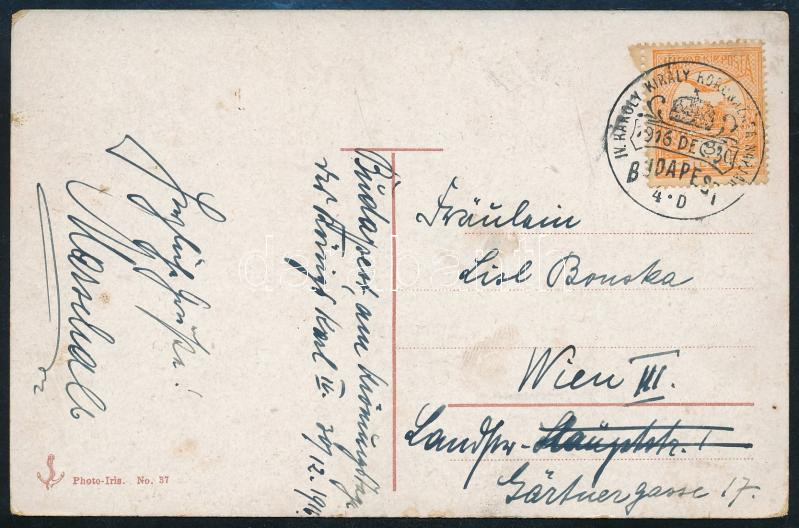 Herzliche Grüße!
Marschall
Budapest, am Krönungstage
des Königs Karl IV. 30/12. 1916
MAGYAR KIR. POSTA
IV. KÁROLY KIRÁLY KORONÁZÁSA NAPJÁN
916 DEC 30
BUDAPEST
4 • D
Fräulein
Lisl Bonska
Wien III.
Landstr. Hauptstr. 1
Gärtnergasse 17.
Photo-Iris. No. 37
darabanth